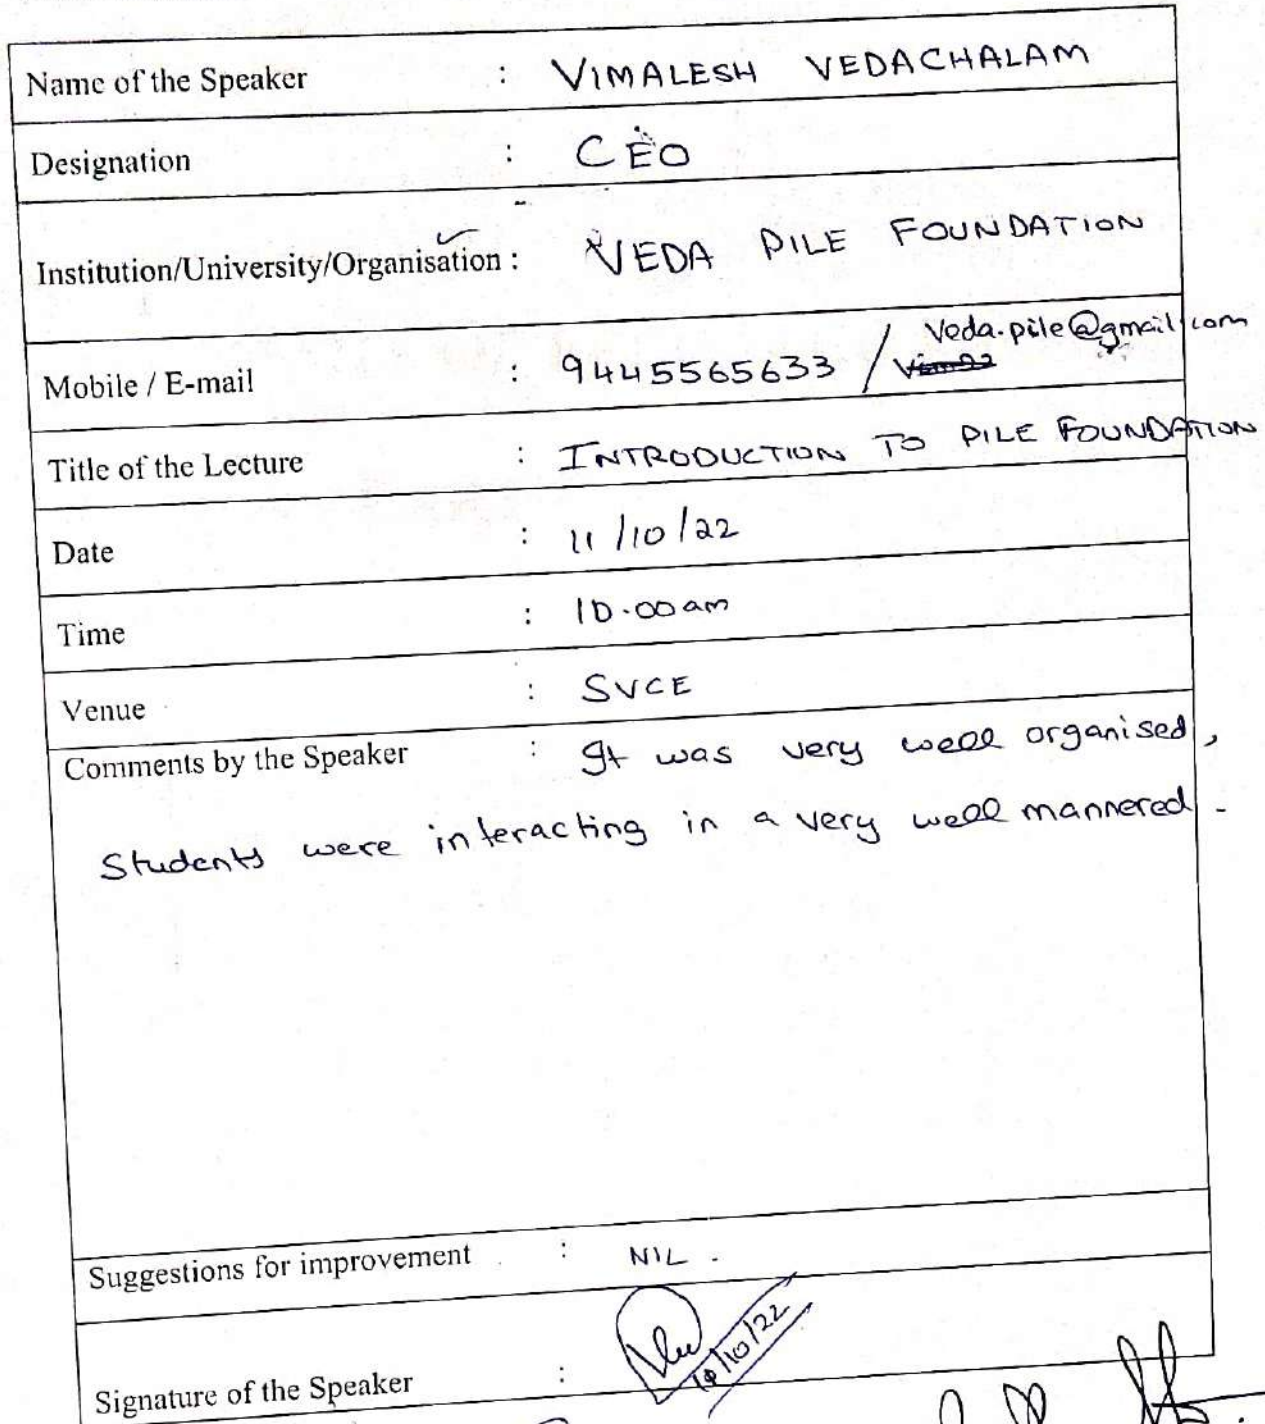 Name of the Speaker : VIMALESH VEDACHALAM
Designation : CEO
Institution/University/Organisation : VEDA PILE FOUNDATION
Veda.pile@gmail.com
Mobile / E-mail : 9445565633 /
Title of the Lecture : INTRODUCTION TO PILE FOUNDATION
Date : 11/10/22
Time : 10.00am
Venue : SVCE
Comments by the Speaker : It was very well organised,
Students were interacting in a very well mannered.
Suggestions for improvement : NIL.
Signature of the Speaker :